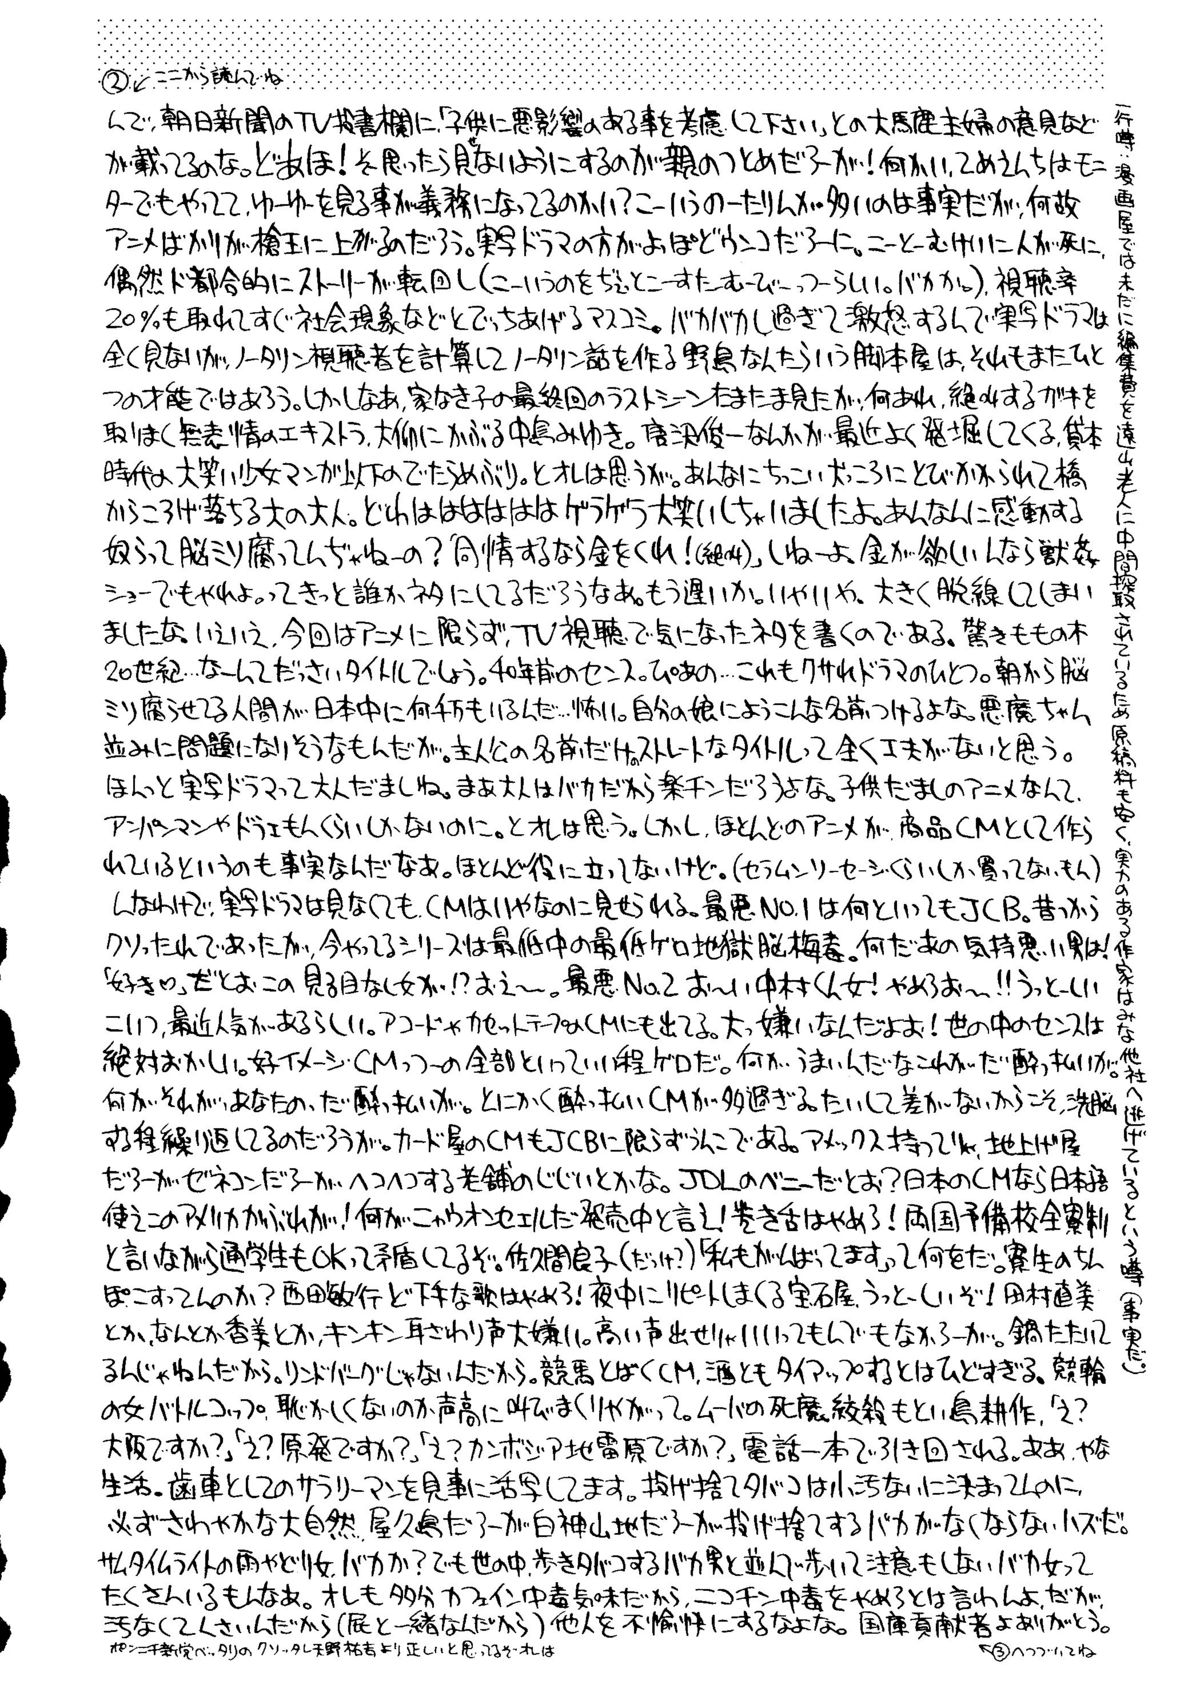 ②↙ここから読んでね
んで、朝日新聞のTV投書欄に、「子供に悪影響のある事を考慮して下さい」との大馬鹿主婦の意見など
が載ってるのな。どあほ!そ思ったら見ないようにするのが親のつとめだろーが!何かい、てめえんちはモニ
ターでもやってて、ゆーゆーを見る事が義務になってるのかい?こーいうのーたりんが多いのは事実だが、何故
アニメばかりが槍玉に上がるのだろう。実写ドラマの方がよっぽどウンコだろーに。こーとーむけいに人が死に、
偶然ド都合的にストーリーが転回し(こーいうのをぢぇとこーすたーむーびーっつーらしい。バカか。)、視聴率
20%も取れてすぐ社会現象などとでっちあげるマスコミ。バカバカし過ぎて激怒するんで実写ドラマは
全く見ないが、ノータリン視聴者を計算してノータリン話を作る野島なんたらいう脚本屋は、それもまたひと
つの才能ではあろう。しかしなあ、家なき子の最終回のラストシーンたまたま見たが、何あれ、絶叫するガキを
取りまく無表情のエキストラ、大仰にかぶる中島みゆき。唐沢俊一なんかが最近よく発掘してくる、貸本
時代の大笑い少女マンガ以下のでたらめぶり。とオレは思うが。あんなにちっこい犬っころにとびかかられて橋
からころげ落ちる大の大人。どわはははははははゲラゲラ大笑いしちゃいましたよ。あんなんに感動する
奴らって脳ミソ腐ってんぢゃねーの?「同情するなら金をくれ!(絶叫)」しねーよ。金が欲しいんなら獣姦
ショーでもやれよ。ってきっと誰かネタにしてるだろうなあ。もう遅いか。いやいや、大きく脱線してしまい
ましたな。いえいえ、今回はアニメに限らず、TV視聴で気になったネタを書くのである。驚きももの木
20世紀…なーんてだっさいタイトルでしょう。40年前のセンス。ぴあの…これもクサれドラマのひとつ。朝から脳
ミソ腐らせてる人間が日本中に何千万もいるんだ…怖い。自分の娘にようこんな名前つけるよな。悪魔ちゃん
並みに問題になりそうなもんだが。主人公の名前だけのストレートなタイトルって全く工夫がないと思う。
ほんっと実写ドラマって大人だましね。まあ大人はバカだから楽チンだろうよな。子供だましのアニメなんて、
アンパンマンやドラえもんくらいしかないのに。とオレは思う。しかし、ほとんどのアニメが、商品CMとして作ら
れているというのも事実なんだなあ。ほとんど役に立ってないけど。(セラムンソーセージくらいしか買ってないもん)
んなわけで、実写ドラマは見なくても、CMはいやなのに見せられる。最悪NO.1は何といってもJCB。昔っから
クソったれであったが、今やってるシリーズは最低中の最低ゲロ地獄脳梅毒。何だあの気持悪い男は!
「好き♡」だとおこの見る目なし女が!?おえ〜。最悪No.2おーい中村くん女!やめろお〜!!うっとーしい
こいつ、最近人気があるらしい。アコードやカセットテープのCMにも出てる。大っ嫌いなんだよお!世の中のセンスは
絶対おかしい。好イメージCMっつーの全部といっていい程ゲロだ。何がうまいんだなこれがだ酔っ払いが。
何がそれが、あなたの、だ酔っ払いが。とにかく酔っ払いCMが多過ぎる。たいして差がないからこそ、洗脳
する程繰り返してるのだろうが。カード屋のCMもJCBに限らずうんこである。アメックス持ってりゃ、地上げ屋
だろーがゼネコンだろーが、ヘコヘコする老舗のじじいとかな。JDLのベニーだとお?日本のCMなら日本語
使えこのアメリカかぶれが!何がニャウオンセェルだ発売中と言え!巻き舌はやめろ!両国予備校全寮制
と言いながら通学生もOKって矛盾してるぞ。佐久間良子(だっけ?)「私もがんばってます」って何をだ。寮生のちん
ぽこすってんのか?西田敏行ど下手な歌はやめろ!夜中にリピートしまくる宝石屋、うっとーしいぞ!田村直美
とか、なんとか香美とか、キンキン耳ざわり声大嫌い。高い声出せりゃいいってもんでもなかろーが。鍋たたいて
るんじゃねんだから。リンドバーグじゃないんだから。競馬とばくCM、酒ともタイアップするとはひどすぎる。競輪
の女バトルコップ、恥かしくないのか声高に叫びまくりやがって。ムーバの死魔絞殺もとい島耕作、「え?
大阪ですか?」「え?原発ですか?」「え?カンボジア地雷原ですか?」電話一本で引き回される。ああ、やな
生活。歯車としてのサラリーマンを見事に活写してます。投げ捨てタバコは小汚ないに決まってんのに、
必ずさわやかな大自然、屋久島だろーが白神山地だろーが投げ捨てするバカがなくならないハズだ。
サムタイムライトの雨やどり女、バカか?でも世の中、歩きタバコするバカ男と並んで歩いて注意もしないバカ女って
たくさんいるもんなあ。オレも多分カフェイン中毒気味だから、ニコチン中毒をやめろとは言わんよ、だが、
汚なくてくさいんだから(屁と一緒なんだから)他人を不愉快にするなよな。国庫貢献者よありがとう。
ポンニチ新党ベッタリのクソッタレ天野祐吉より正しいと思ってるぞオレは
↖③へつづいてね
一行噂:漫画屋では未だに編集費を遠山老人に中間搾取されているため原稿料も安く、実力のある作家はみな他社へ逃げているという噂(事実だ。)